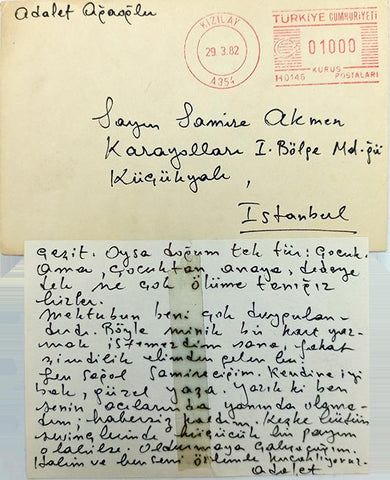 Adalet Ağaoğlu
KIZILAY
29.3.82
A354
TÜRKİYE CUMHURİYETİ
01000
KURUŞ
H0146 POSTALARI
Sayın Samire Akmen
Karayolları I. Bölge Md-ğü
Küçükyalı,
İstanbul
çeşit. Oysa doğum tek tür: Çocuk.
Ama, çocuktan, anaya, dedeye
dek ne çok ölüme tanığız
bizler.
Mektubun beni çok duygulan-
dırdı. Böyle minik bir kart yaz-
mak istemezdim sana, fakat
şimdilik elimden gelen bu.
Sen sağol Samireciğim. Kendine iyi
bak, güzel yaşa. Yazık ki ben
senin acılarında yanında olama-
dım; habersiz kaldım. Keşke bütün
sevinçlerinde küçücük bir payım
olabilse. Oldurmaya çalışacağım.
Halim ve ben seni özlemle kucaklıyoruz.
Adalet